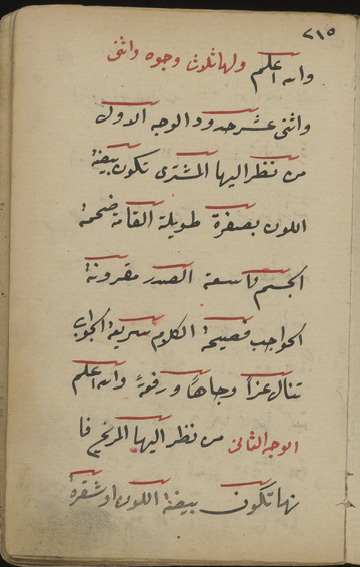 ٢١٥
والله اعلم ولها ثلاث وجوه واثنى
واثنى عشر حدود الوجه الاول
من نظر اليها المشترى تكون بيضة
اللون بصفرة طويلة القامة ضخمة
الجسم واسعة الصدر مقرونة
الحواجب فصيحة الكلام سريعة الجواب
تنال عزاً وجاهاً ورفعةً والله اعلم
الوجه الثانى من نظر اليها المريخ فا
نها تكون بيضة اللون او شقرة